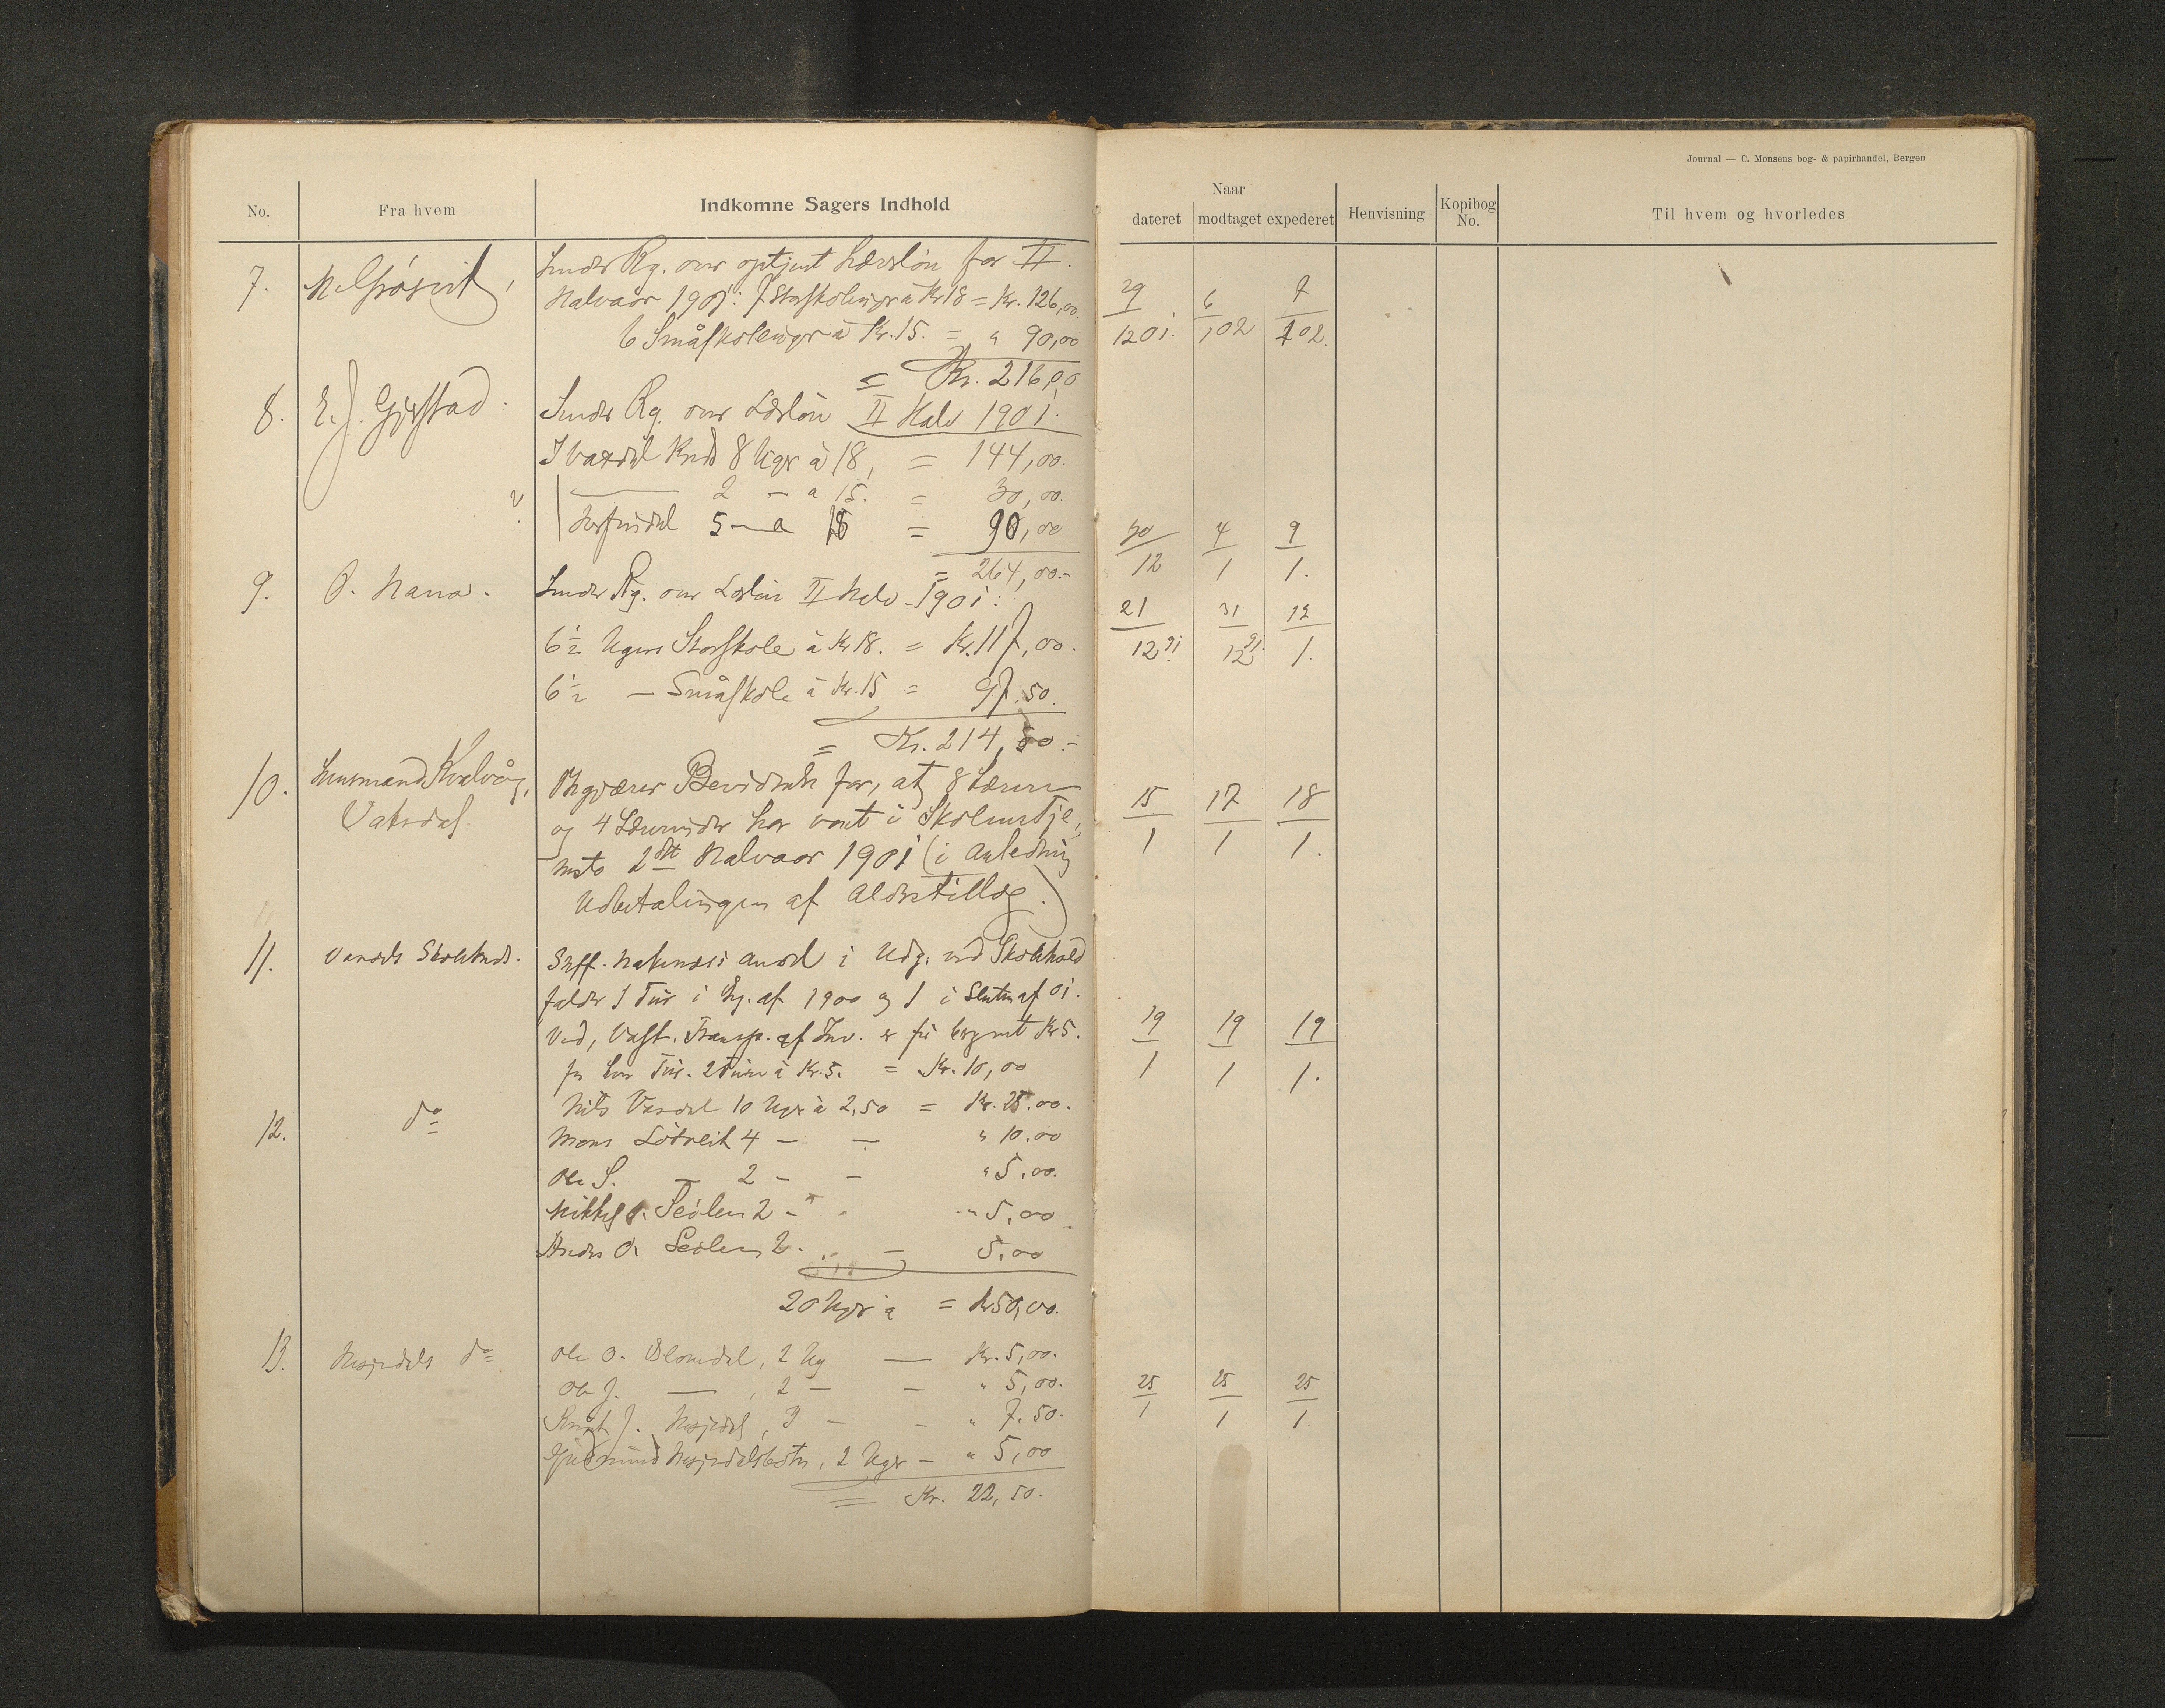 Journal — C. Monsens bog- & papirhandel, Bergen
No.
Fra hvem
Indkomne Sagers Indhold
Naar
dateret
modtaget
expederet
Henvisning
Kopibog No.
Til hvem og hvorledes
7.
Sender Rg. over optjent Lærerløn for II.
Halvaar 1901: 7 Storskoleuger à Kr 18 = Kr. 126,00.
6 Småskoleuger à Kr. 15. = " 90,00
= Kr. 216,00
29/1201. 6/102 7/102.
8. E. J. Gjerstad.
Sender Rg. over Lærløn II Halv 1901.
I Vaxdal Kreds 8 Uger à 18, = 144,00.
2 — a 15. = 30,00.
5 — a 18 = 90,00
= 264,00.-
30/12 4/1 9/1.
9. O. Nana.
Sender Rg. over Lærløn II Halv 1901:
6½ Ugers Storskole à Kr 18. = Kr. 117,00.
6½ — Småskole à Kr. 15 = 97.50.
= Kr. 214,50.-
21/12 91. 31/12 91. 12/1.
10. Lensmand Kvalvåg,
Vatndal.
Begjærer Bevidnelse for, at 8 Lærere
og 4 Lærerinder har vært i Skolens Tje-
neste 2det Halvaar 1901 (i Anledning
Udbetalingen af Alderstillæg.)
15/1 17/1 18/1.
11. Vaxdals Skolekreds.
i Udg. ved Skolehold
falder 1 Tur i Beg. af 1900 og 1 i Slutn af 01.
Ved, Vask, Transp. af Inv. er før beregnet Kr 5.
for hver Tur. 2 Ture à Kr. 5. = Kr. 10,00
19/1 19/1 19/1.
12. do
Nils Vaxdal 10 Uger à 2,50 = Kr. 25.00.
Mons Lötveit 4 — — " 10.00
Ole S. — 2 — — " 5,00.
Mikkel 2 — " 5,00
Anders O. 2 — 5,00
20 Uger à = Kr 50,00.
13. Nesjedals do
Ole O. Blomdal, 2 Ug — Kr. 5,00.
Ole J. — , 2 — — " 5,00.
Knut J. Nesjedal, 3 — — " 7.50.
Gudmund Nesjedalsbotn, 2 Uger — " 5,00
= Kr. 22,50.
25/1 25/1 25/1.